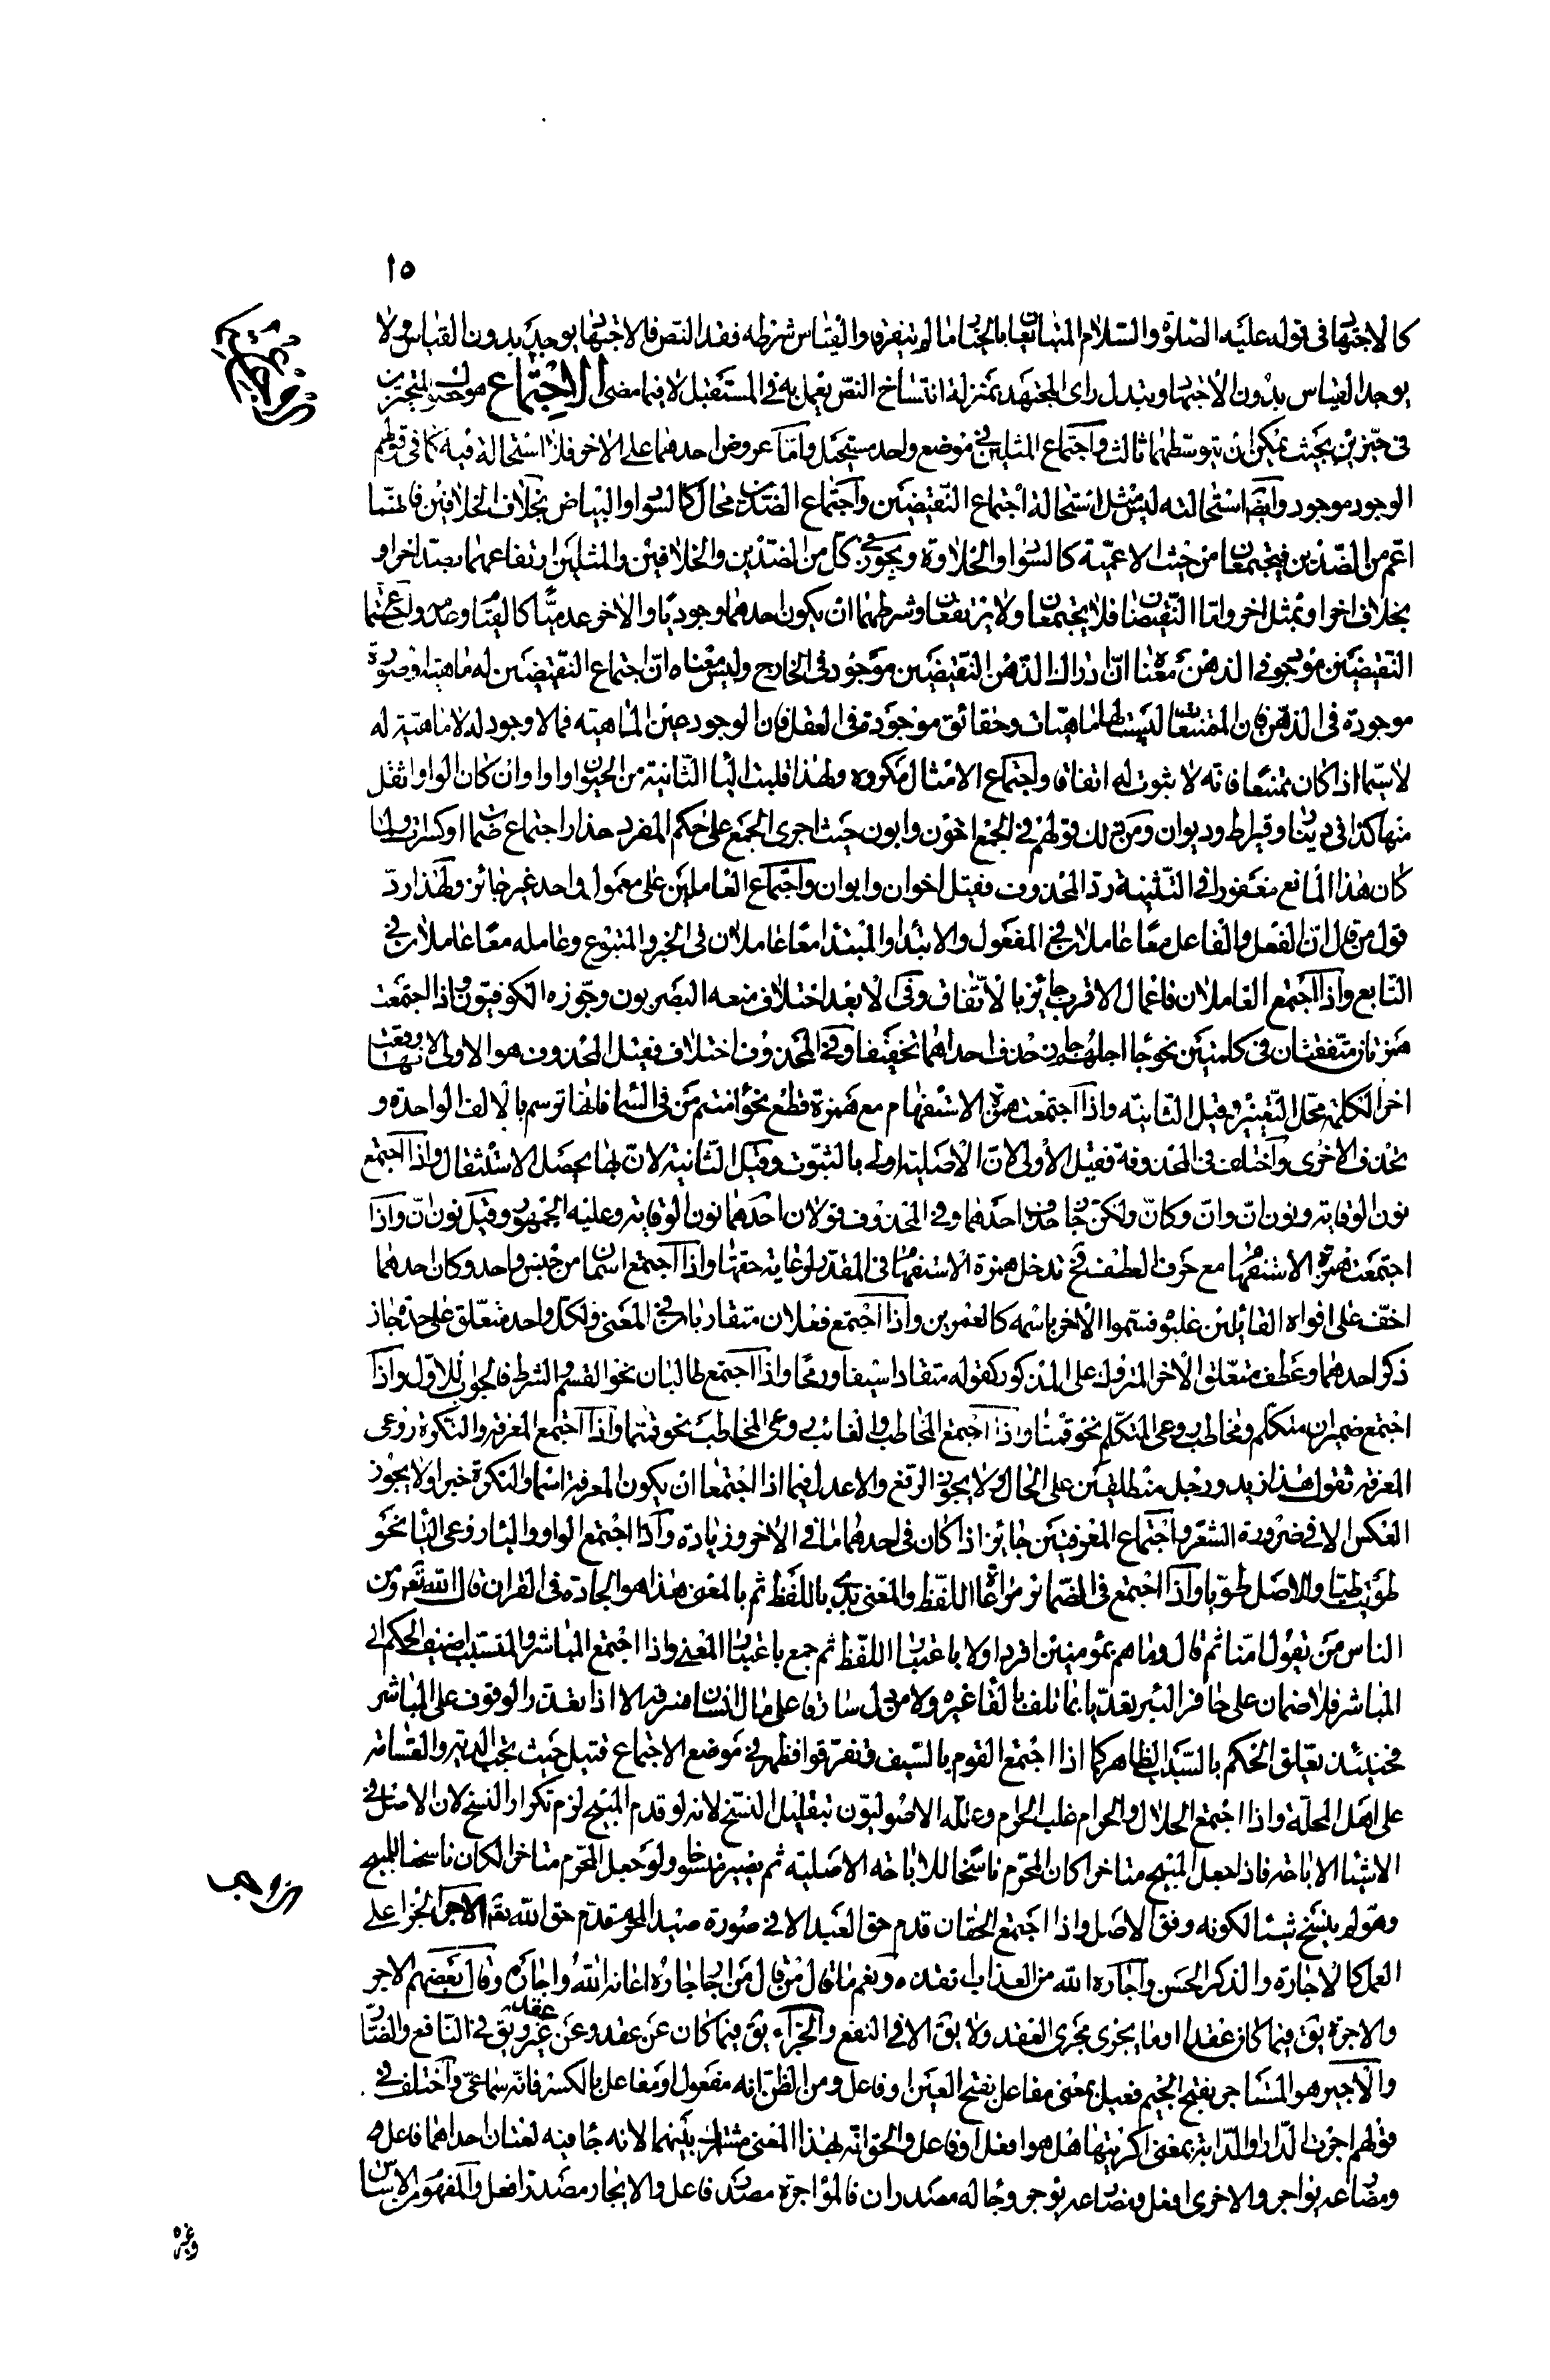 ١٥
كالاجتهاد فى قوله عليه الصلوة والسلام المتبايعان بالخيار ما لم يتفرقا والقياس شرطه فقد النص فالاجتهاد يوجد بدون القياس ولا
يوجد القياس بدون الاجتهاد وتبدل راى المجتهد بمنزلة انتساخ النص يعمل به فى المستقبل لا فيما مضى الاجتماع هو حصول المتحيزين
فى حيزين بحيث يمكن ان يتوسطهما ثالث واجتماع المثلين فى موضع واحد مستحيل واما عروض احدهما على الاخر فلا استحالة فيه كما فى قولهم
الوجود موجود وايضا استحالته ليس مثل استحالة اجتماع النقيضين واجتماع الضدين محال كالسواد والبياض بخلاف الخلافين فانهما
اعم من الضدين فيجتمعان من حيث الاعمية كالسواد والحلاوة ويجوز فى كل من الضدين والخلافين والمثلين ارتفاعهما بضد اخر او
بخلاف اخر او بمثل اخر واما النقيضان فلا يجتمعان ولا يرتفعان وشرطهما ان يكون احدهما وجوديا والاخر عدميا كالقيام وعدمه واجتماع
النقيضين موجود فى الذهن معناه ان ادراك الذهن النقيضين موجود فى الخارج وليس معناه ان اجتماع النقيضين له ماهية او صورة
موجودة فى الذهن فان الممتنعات ليست لها ماهيات وحقائق موجودة فى العقل فان الوجود عين الماهية فما لا وجود له لا ماهية له
لا سيما اذا كان ممتنعا فانه لا ثبوت له اتفاقا واجتماع الامثال مكروه ولهذا قلبت اليا الثانية من الحيوان واوا وان كان الواو اثقل
منها كذا فى دينار وقيراط وديوان ومن ذلك قولهم فى الجمع اخون وابون حيث اجرى الجمع على حكم المفرد حذار اجتماع ضمات او كسرات ولما
كان هذا المانع مغفورا فى التثنية رد المحذوف فقيل اخوان وابوان واجتماع العاملين على معمول واحد غير جائز ولهذا رد
قول من قال ان الفعل والفاعل معا عاملان فى المفعول والابتدا والمبتدا معا عاملان فى الخبر والمتبوع وعامله معا عاملان فى
التابع واذا اجتمع العاملان فاعمال الاقرب جائز بالاتفاق وفى الابعد اختلاف منعه البصريون وجوزه الكوفيون واذا اجتمعت
همزتان متفقتان فى كلمتين نحو جا اجلهم جاز حذف احداهما تخفيفا وفى المحذوف اختلاف فقيل المحذوف هو الاولى لانها وقعت
اخر الكلمة محل التغيير وقيل الثانية واذا اجتمعت همزة الاستفهام مع همزة قطع نحو امنتم من فى السما فانها ترسم بالالف الواحدة و
يحذف الاخرى واختلف فى المحذوفة فقيل الاولى لان الاصلية اولى بالثبوت وقيل الثانية لان بها يحصل الاستثقال واذا اجتمع
نون الوقاية ونون ان وان وكان ولكن جاز حذف احدهما وفى المحذوف قولان احدهما نون الوقاية وعليه الجمهور وقيل نون ان واذا
اجتمعت همزة الاستفهام مع حرف العطف فح تدخل همزة الاستفهام فى المقدر لرعاية حقها واذا اجتمع اسمان من جنس واحد وكان احدهما
اخف على افواه القائلين غلبوه فسموا الاخر باسمه كالعمرين واذا اجتمع فعلان متقاربان فى المعنى ولكل واحد متعلق على حدة جاز
ذكر احدهما وعطف متعلق الاخر المتروك على المذكور كقوله متقلدا سيفا ورمحا واذا اجتمع طالبان نحو القسم والشرط فالجواب للاول واذا
اجتمع ضميران متكلم ومخاطب روعى المتكلم نحو قمنا واذا اجتمع المخاطب والغائب روعى المخاطب نحو قمتما واذا اجتمع المعرفة والنكرة روعى
المعرفة تقول هذا زيد ورجل منطلقين على الحال ولا يجوز الرفع والاعدل فيما اذا اجتمعا ان يكون المعرفة اسما والنكرة خبرا ولا يجوز
العكس الا فى ضرورة الشعر واجتماع المعرفتين جائز اذا كان فى احدهما ما فى الاخر وزيادة واذا اجتمع الواو واليا روعى اليا نحو
طويت طيا والاصل طويا واذا اجتمع فى الضمائر مراعاة اللفظ والمعنى بدئ باللفظ ثم بالمعنى هذا هو الجادة فى القران قال الله تع ومن
الناس من يقول امنا ثم قال وما هم بمومنين افرد اولا باعتبار اللفظ ثم جمع باعتبار المعنى واذا اجتمع المباشر والمتسبب اضيف الحكم الى
المباشر فلا ضمان على حافر البئر تعديا بما تلف بالقا غيره ولا من دل سارقا على مال انسان فسرقه الا اذا تعذر الوقوف على المباشر
فحينئذ يعلق الحكم بالسبب الظاهر كما اذا اجتمع القوم بالسيف وتفرقوا فظهر فى موضع الاجتماع قتيل حيث يجب الدية والقسامة
على اهل المحلة واذا اجتمع الحلال والحرام غلب الحرام وعلله الاصوليون بتقليل النسخ لانه لو قدم المبيح لزم تكرار النسخ لان الاصل فى
الاشيا الاباحة فاذا جعل المبيح متاخرا كان المحرم ناسخا للاباحة الاصلية ثم يصير منسوخا ولو جعل المحرم متاخرا لكان ناسخا للمبيح
وهو لم ينسخ شيئا لكونه وفق الاصل واذا اجتمع الحقان قدم حق العبد الا فى صورة صيد المحرم تقدم حق الله تع الاجر الجزا على
العمل كالاجارة والذكر الحسن واجاره الله من العذاب انقذه ونعم ما قال من قال من اجار جاره اعانه الله واجاره وقال بعضهم الاجر
والاجرة يق فيما كان عقدا وما يجرى مجرى العقد ولا يق الا فى النفع والجزاء يق فيما كان عن عقد وعن غير عقد ويق فى النافع والضار
والاجير هو المستاجر بفتح الجيم فعيل بمعنى مفاعل بفتح العين او فاعل ومن الظن انه مفعول او مفاعل بالكسر فانه سماعى واختلف فى
قولهم اجرت الدار والدابة بمعنى اكريتها هل هو افعل او فاعل والحق انه بهذا المعنى مشترك بينهما لانه جا فيه لغتان احداهما فاعل
ومضارعه يواجر والاخرى افعل ومضارعه يوجر وجا له مصدران فالمؤاجرة مصدر فاعل والايجار مصدر افعل والمفهوم من الاساس
وغيره